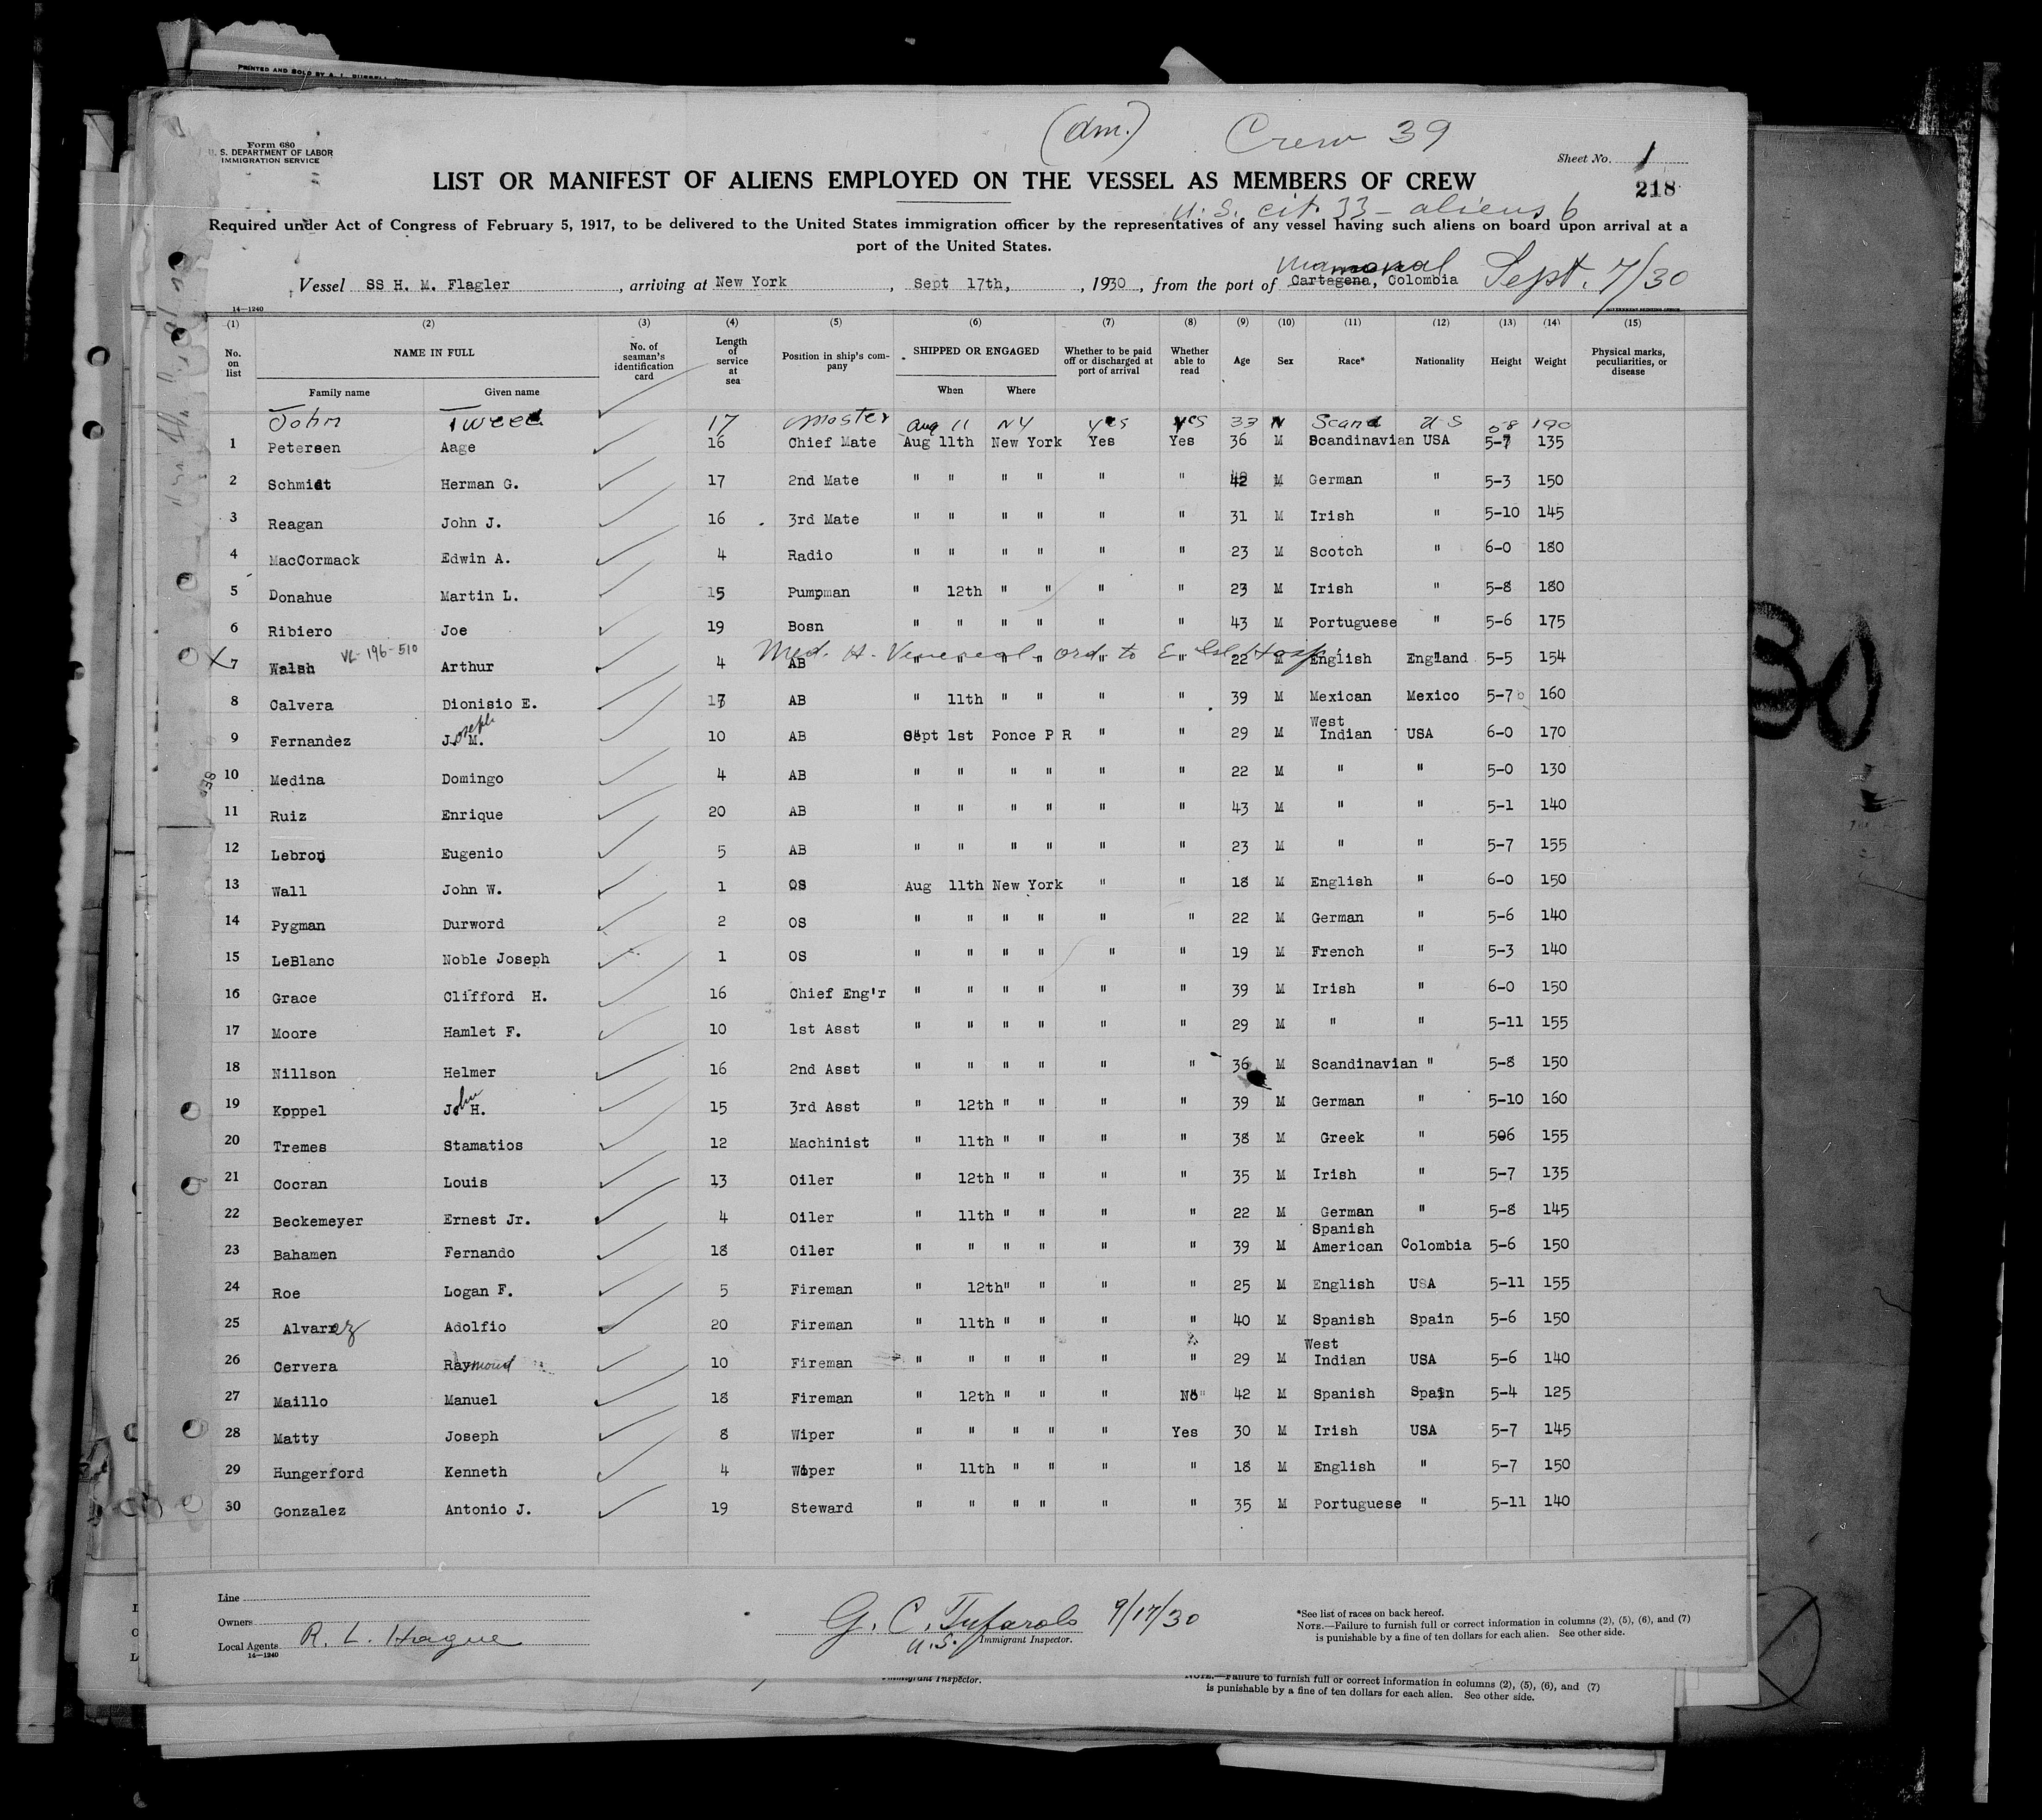 PRINTED AND SOLD BY A. L. RUSSELL, INC.
(dm.) Crew 39
Form 680
U. S. DEPARTMENT OF LABOR
IMMIGRATION SERVICE
Sheet No. 1
218
LIST OR MANIFEST OF ALIENS EMPLOYED ON THE VESSEL AS MEMBERS OF CREW
U.S. cit. 33 - aliens 6
Required under Act of Congress of February 5, 1917, to be delivered to the United States immigration officer by the representatives of any vessel having such aliens on board upon arrival at a
port of the United States.
Mamonal
Vessel SS H. M. Flagler, arriving at New York, Sept 17th, 1930, from the port of Cartagena, Colombia Sept. 7/30
14—1240 GOVERNMENT PRINTING OFFICE
(1) (2) (3) (4) (5) (6) (7) (8) (9) (10) (11) (12) (13) (14) (15)
No. on list NAME IN FULL No. of seaman's identification card Length of service at sea Position in ship's company SHIPPED OR ENGAGED Whether to be paid off or discharged at port of arrival Whether able to read Age Sex Race* Nationality Height Weight Physical marks, peculiarities, or disease
Family name Given name When Where
John Tweed 17 Master Aug 11 NY yes yes 33 M Scand U S 58 190
1 Petersen Aage 16 Chief Mate Aug 11th New York Yes Yes 36 M Scandinavian USA 5-7 135
2 Schmidt Herman G. 17 2nd Mate " " " " " " 42 M German " 5-3 150
3 Reagan John J. 16 3rd Mate " " " " " " 31 M Irish " 5-10 145
4 MacCormack Edwin A. 4 Radio " " " " " " 23 M Scotch " 6-0 180
5 Donahue Martin L. 15 Pumpman " 12th " " " " 23 M Irish " 5-8 180
6 Ribiero Joe 19 Bosn " " " " " " 43 M Portuguese " 5-6 175
VL-196-510 Med. H. Venereal ord. to E. Isl Hosp
X 7 Walsh Arthur 4 AB " " " " " " 22 M English England 5-5 154
8 Calvera Dionisio E. 17 AB " 11th " " " " 39 M Mexican Mexico 5-7 160
9 Fernandez J. Joseph M. 10 AB Sept 1st Ponce P R " " 29 M West Indian USA 6-0 170
10 Medina Domingo 4 AB " " " " " " 22 M " " 5-0 130
11 Ruiz Enrique 20 AB " " " " " " 43 M " " 5-1 140
12 Lebron Eugenio 5 AB " " " " " " 23 M " " 5-7 155
13 Wall John W. 1 OS Aug 11th New York " " 18 M English " 6-0 150
14 Pygman Durword 2 OS " " " " " " 22 M German " 5-6 140
15 LeBlanc Noble Joseph 1 OS " " " " " " 19 M French " 5-3 140
16 Grace Clifford H. 16 Chief Eng'r " " " " " " 39 M Irish " 6-0 150
17 Moore Hamlet F. 10 1st Asst " " " " " " 29 M " " 5-11 155
18 Nillson Helmer 16 2nd Asst " " " " " " 36 M Scandinavian " 5-8 150
19 Koppel John H. 15 3rd Asst " 12th " " " " 39 M German " 5-10 160
20 Tremes Stamatios 12 Machinist " 11th " " " " 38 M Greek " 506 155
21 Cocran Louis 13 Oiler " 12th " " " " 35 M Irish " 5-7 135
22 Beckemeyer Ernest Jr. 4 Oiler " 11th " " " " 22 M German " 5-8 145
23 Bahamen Fernando 18 Oiler " " " " " " 39 M Spanish American Colombia 5-6 150
24 Roe Logan F. 5 Fireman " 12th " " " " 25 M English USA 5-11 155
25 Alvarez Adolfio 20 Fireman " 11th " " " " 40 M Spanish Spain 5-6 150
26 Cervera Raymond 10 Fireman " " " " " " 29 M West Indian USA 5-6 140
27 Maillo Manuel 18 Fireman " 12th " " " No 42 M Spanish Spain 5-4 125
28 Matty Joseph 8 Wiper " " " " " Yes 30 M Irish USA 5-7 145
29 Hungerford Kenneth 4 Wiper " 11th " " " " 18 M English " 5-7 150
30 Gonzalez Antonio J. 19 Steward " " " " " " 35 M Portuguese " 5-11 140
Line
Owners
Local Agents R. L. Hague
14—1240
G. C. Tufarolo 9/17/30
U.S. Immigrant Inspector.
*See list of races on back hereof.
NOTE.—Failure to furnish full or correct information in columns (2), (5), (6), and (7)
is punishable by a fine of ten dollars for each alien. See other side.
Immigrant Inspector.
NOTE.—Failure to furnish full or correct information in columns (2), (5), (6), and (7)
is punishable by a fine of ten dollars for each alien. See other side.
30